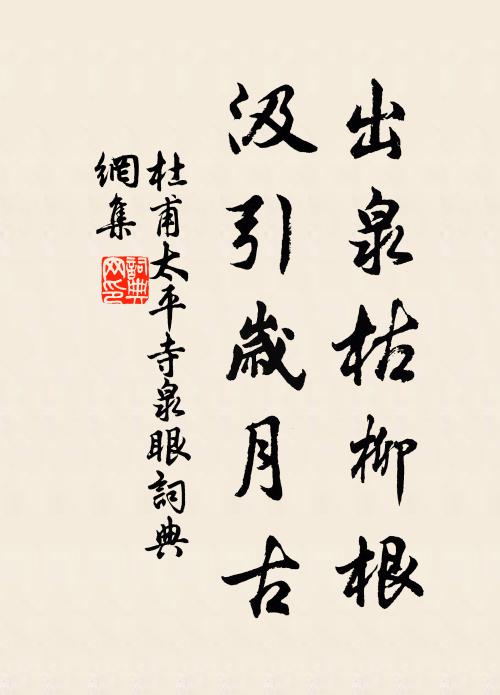 出泉枯柳根
汲引歲月古
杜甫太平寺泉眼詞典
網集
詞典
网印